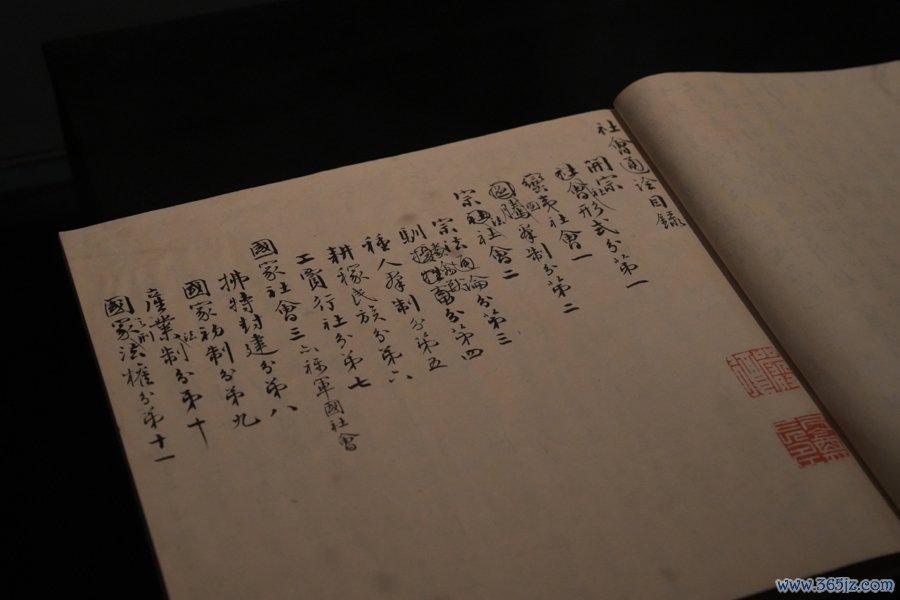 社會通詮目錄
開宗
社會形式分第一
蠻夷社會一
圖騰羣制分第二
宗法社會二
宗法通論分第三
馴擾禽獸分第四
種人羣制分第五
耕稼民族分第六
工賈行社分第七
國家社會三 亦稱軍國社會
拂特封建分第八
國家初制分第九
產業法制分第十
國家之刑法權分第十一
www.365jz.com